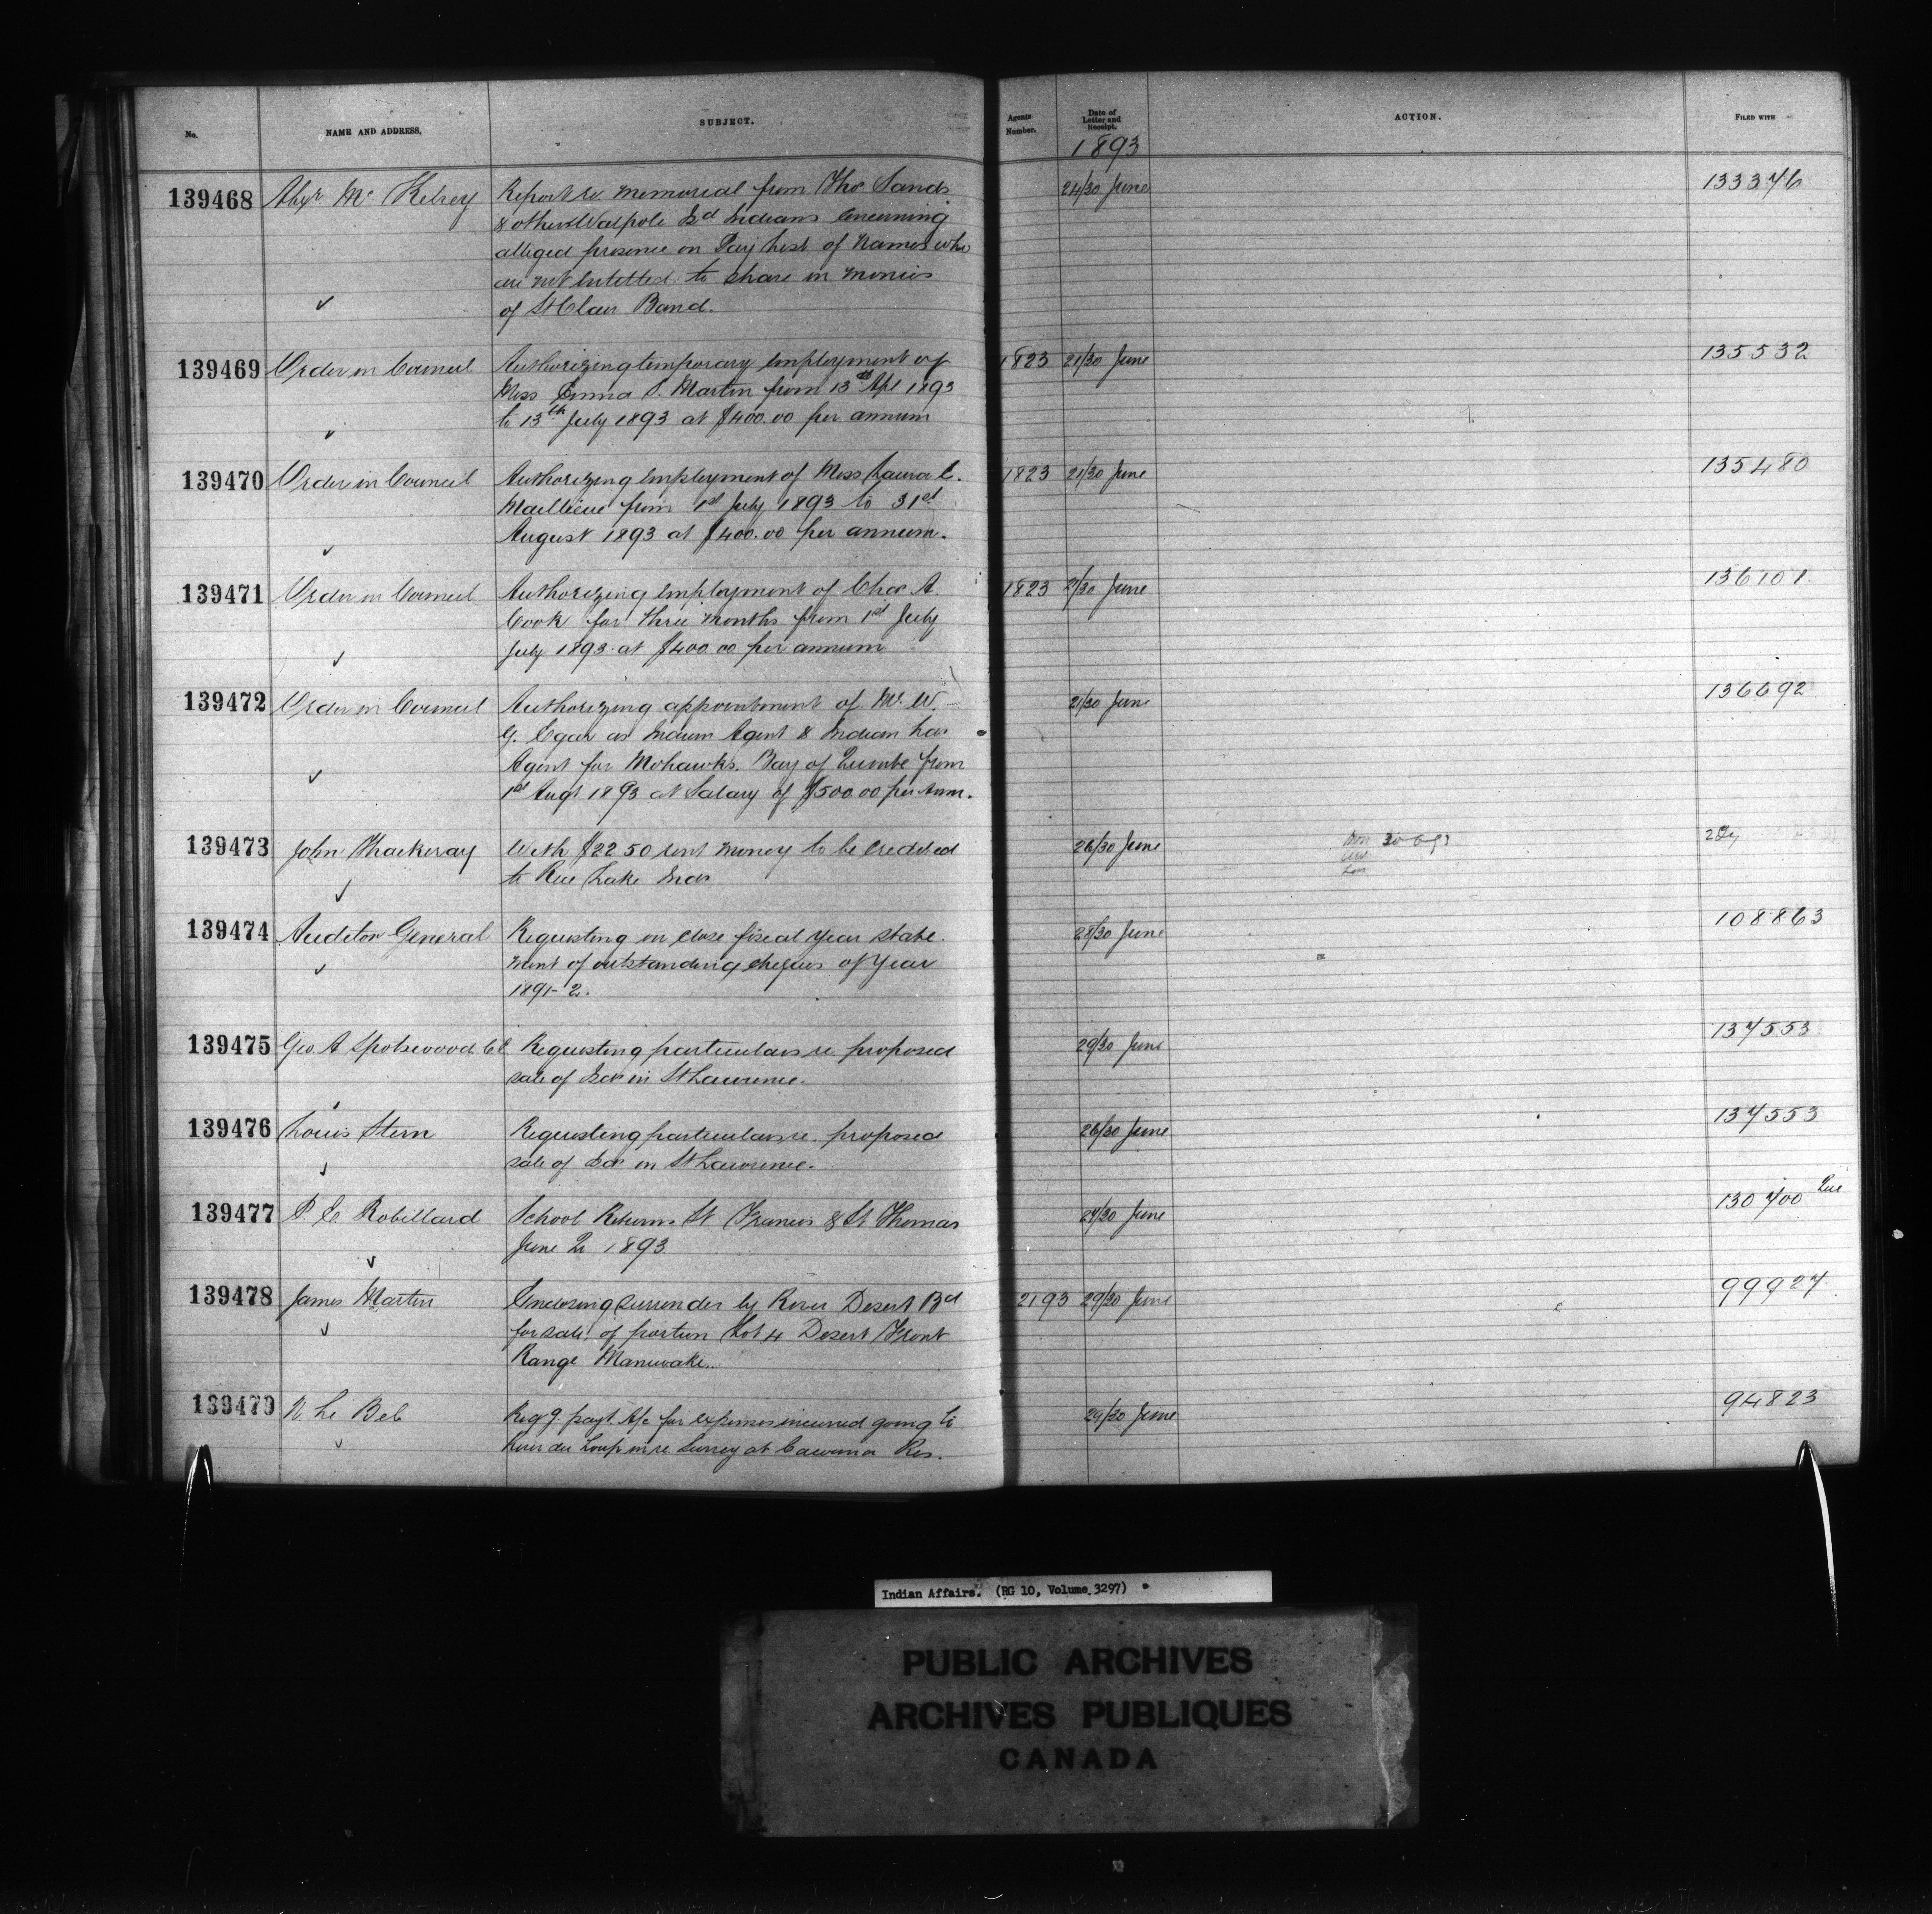 No. NAME AND ADDRESS. SUBJECT. Agents Number. Date of Letter and Receipt. ACTION. FILED WITH
1893
139468 Alexr Mc Kelvey Report re memorial from Thos Sands 24/30 June 133376
& others Walpole Isd Indians concerning
alleged presence on Pay list of names who
are not entitled to share in monies
of St Clair Band.
139469 Order in Council Authorizing temporary employment of 1823 21/30 June 135532
Miss Emma S. Martin from 13th Apl 1893
to 13th July 1893 at $400.00 per annum
139470 Order in Council Authorizing employment of Miss Laura C. 1823 21/30 June 135480
Maillieue from 1st July 1893 to 31st
August 1893 at $400.00 per annum.
139471 Order in Council Authorizing employment of Chas A. 1823 21/30 June 136101
Cook for three months from 1st July
July 1893 at $400.00 per annum
139472 Order in Council Authorizing appointment of Mr. W. 21/30 June 136692
G. Egar as Indian Agent & Indian Lan
Agent for Mohawks, Bay of Quinte from
1st Augt 1893 at Salary of $500.00 per Anm.
139473 John Thackeray With $22.50 rent money to be credited 26/30 June 30-6-93
to Rice Lake Inds
139474 Auditor General Requesting on close fiscal year state- 28/30 June 108863
ment of outstanding cheques of year
1891-2.
139475 Geo. A Spotswood C.E Requesting particulars re. proposed 29/30 June 137553
sale of Isds in St Lawrence.
139476 Louis Stern Requesting particulars re. proposed 26/30 June 137553
sale of Isds in St Lawrence.
139477 P. E Robillard School Returns St Francis & St Thomas 27/30 June 130700 Que
June Qr 1893
139478 James Martin Enclosing Surrender by River Desert Bd 2193 29/30 June 99927
for sale of portion Lot 4 Desert Front
Range Maniwaki.
139479 N. Le Bel Reqg payt A/c for expenses incurred going to 29/30 June 94823
River du Loup in re Survey at Cacouna Res.
Indian Affairs. (RG 10, Volume 3297)
PUBLIC ARCHIVES
ARCHIVES PUBLIQUES
CANADA